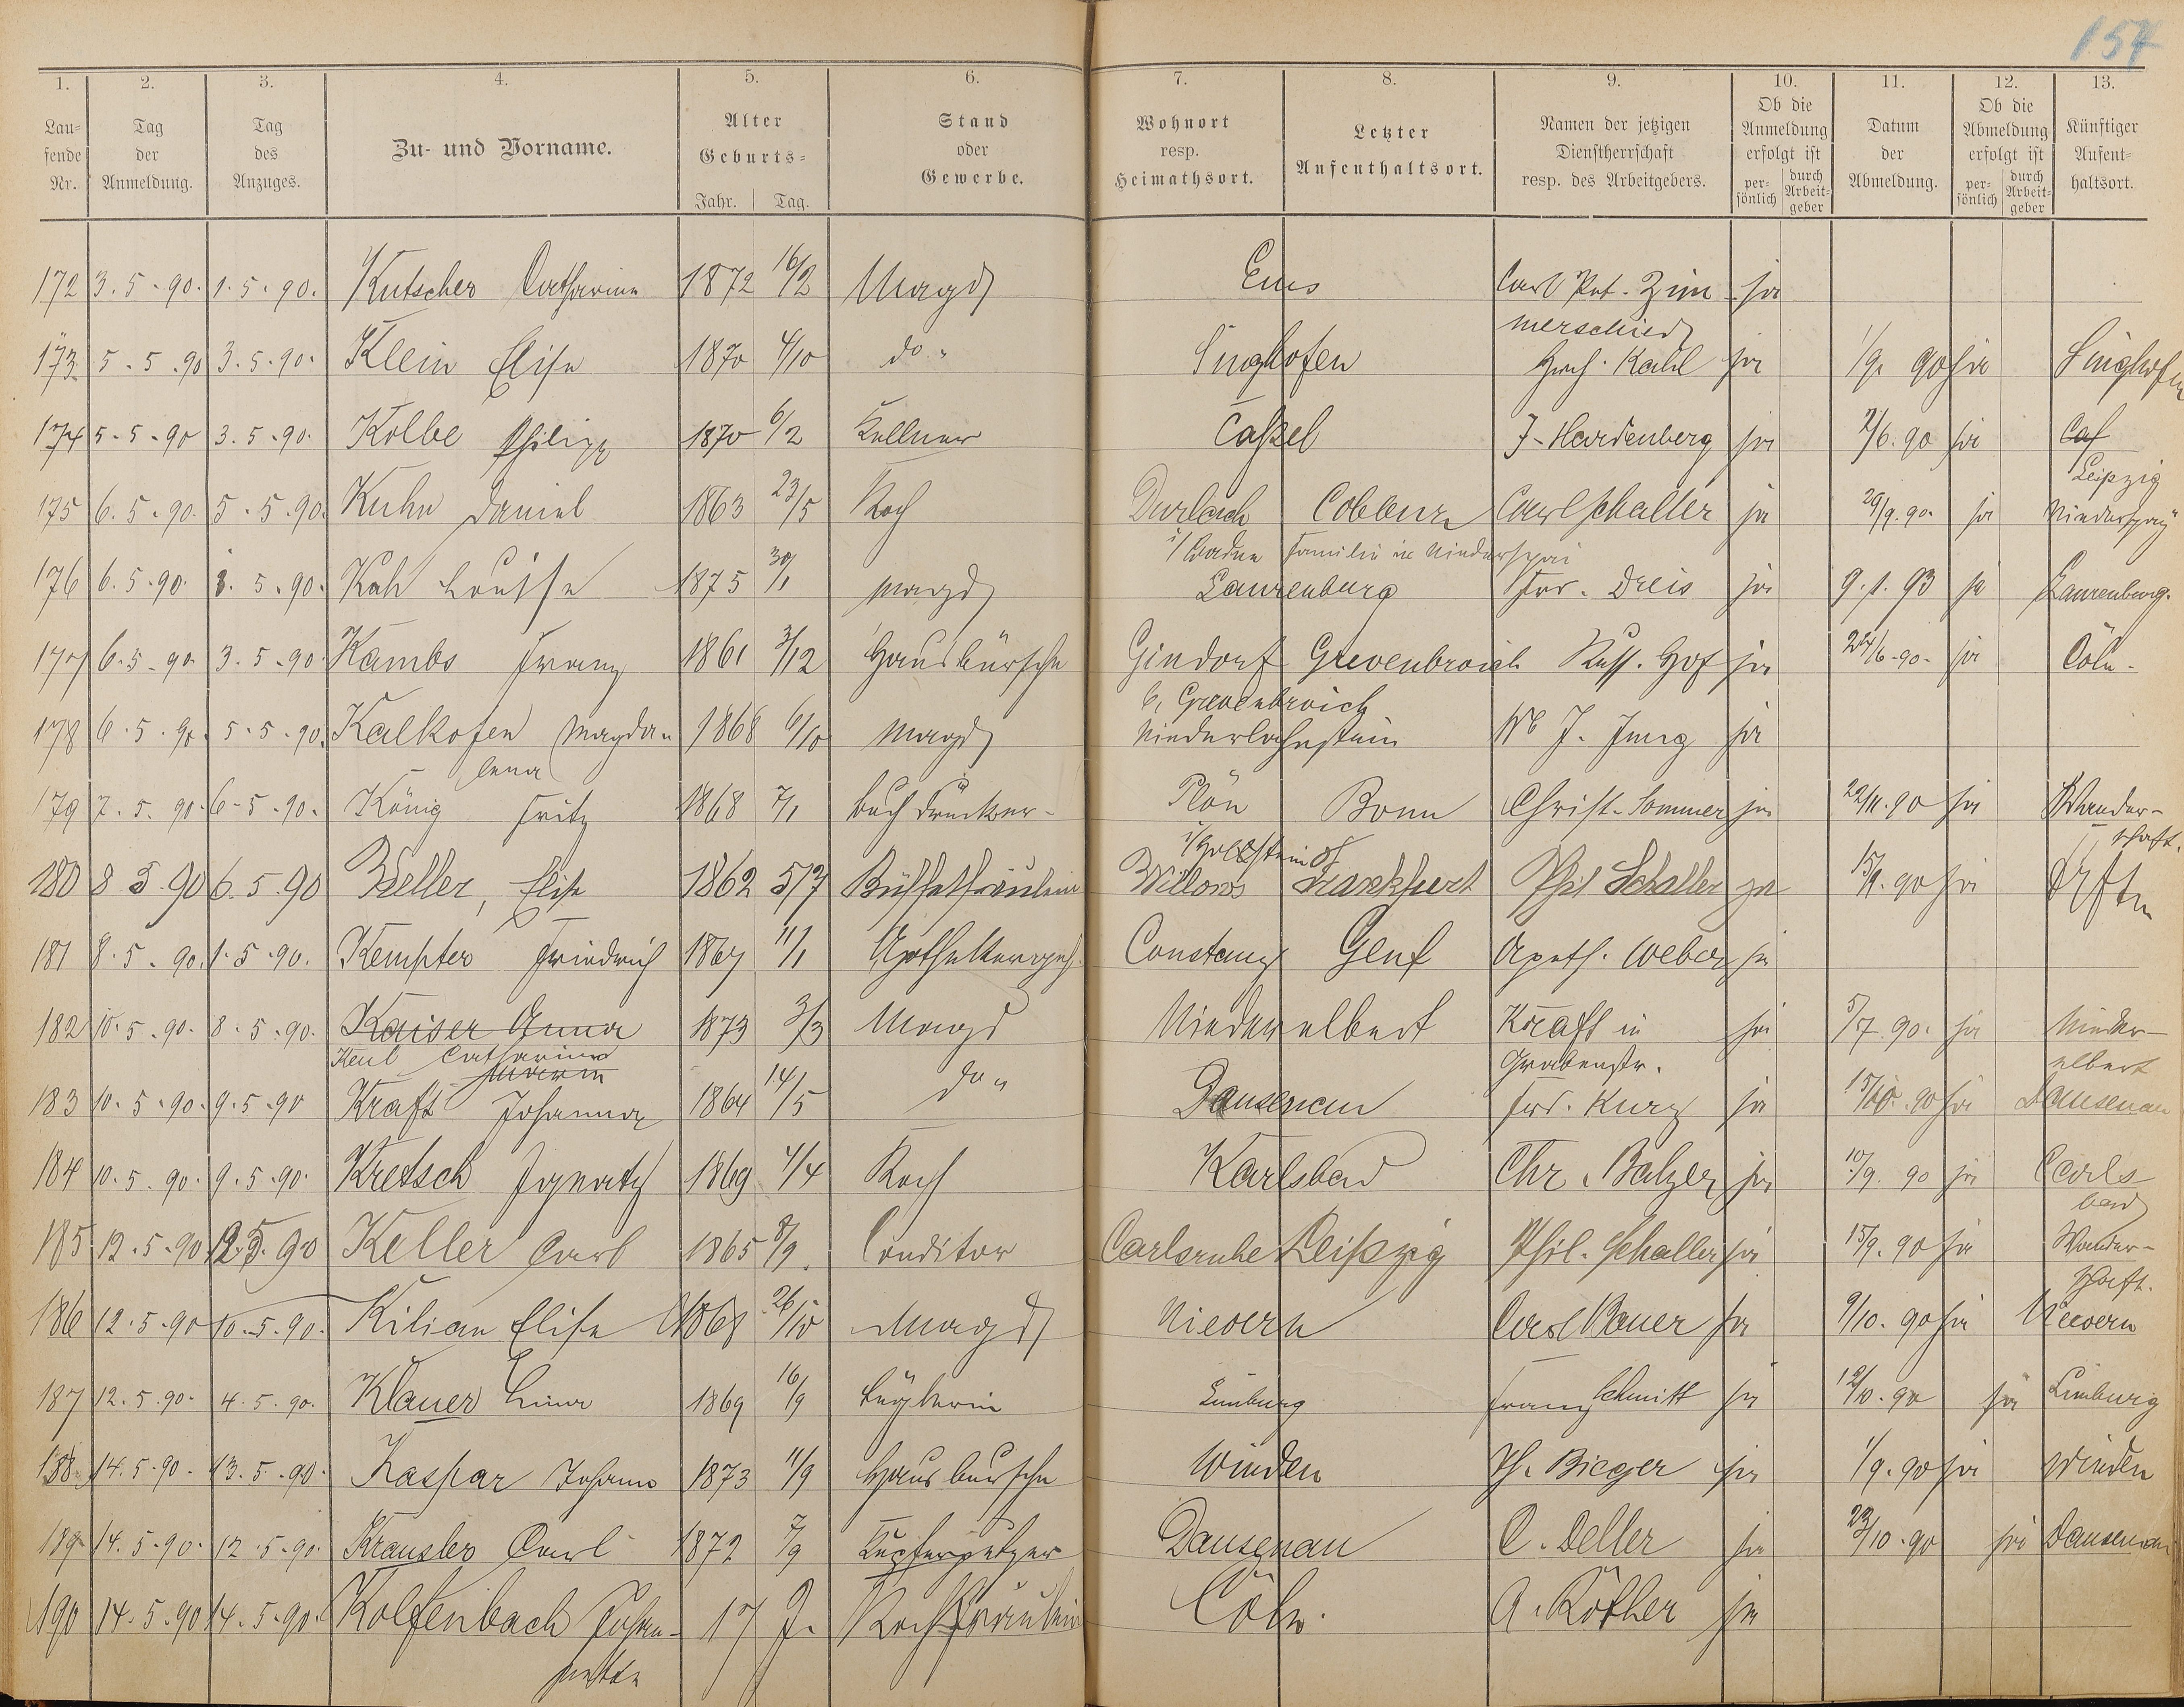 157
1. 2. 3. 4. 5. 6. 7. 8. 9. 10. 11. 12. 13.
Laufende Nr. Tag der Anmeldung. Tag des Anzuges. Zu- und Vorname. Alter Geburts- Jahr. Tag. Stand oder Gewerbe. Wohnort resp. Heimathsort. Letzter Aufenthaltsort. Namen der jetzigen Dienstherrschaft resp. des Arbeitgebers. Ob die Anmeldung erfolgt ist persönlich durch Arbeitgeber Datum der Abmeldung. Ob die Abmeldung erfolgt ist persönlich durch Arbeitgeber Künftiger Aufenthaltsort.
172 3.5.90. 1.5.90. Kutscher Catharina 1872 16/2 Magd Ems Carl Pet. Zim ja
merschied
173 5.5.90 3.5.90. Klein Elise 1870 4/10 do " Singhofen Hrch. Kahl ja 1/9 90 ja Singhofen
174 5.5.90 3.5.90. Kolbe Philipp 1870 6/2 Kellner Caßel J. Hardenberg ja 2/6.90 ja Caß
Leipzig
175 6.5.90. 5.5.90. Kuhn Daniel 1863 23/5 Koch Durlach Coblenz Carl Schaller ja 29/9.90. ja Niederspay
i/ Baden Familie in Niederspai
176 6.5.90. 3.5.90. Kah Louise 1875 30/1 Magd Laurenburg Frd. Dreis ja 9.1.93 ja Laurenburg.
177 6.5.90. 3.5.90. Kambs Franz 1861 3/12 Hausbursche Gindorf Grevenbroich Russ. Hof ja 24/6.90. ja Cöln.
b. Grevenbroich
178 6.5.90. 5.5.90. Kalkofen Magda- 1868 6/10 Magd Niederlahnstein Wb J. Jung ja
lena
179 7.5.90. 6.5.90. König Fritz 1868 7/1 Buchdrucker. Plön Bonn Christ. Sommer ja 22/11.90 ja Wander-
i/Hollstein schaft.
180 8 5.90 6.5.90 Zeller, Elise 1862 5/7 Büffetfräulein Frankfurt Phil Schaller ja 15/9.90 ja
181 8.5.90. 1.5.90. Kempter Friedrich 1867 11/1 Apothekergeh. Constanz Genf Apoth. Weber ja
182 10.5.90. 8.5.90. Kaiser Anna 1873 3/3 Magd Niederelbert Kraft in ja 5/7.90. ja Nieder-
Keul Catharina Grabenstr. elbert
183 10.5.90. 9.5.90 Kraft Johanna 1864 14/5 do " Dausenau Frd. Kurz ja 15/10.90 ja Dausenau
184 10.5.90. 9.5.90. Kretsch Ignatz 1869 4/4 Koch Karlsbad Chr. Balzer ja 10/9.90 ja Carls
bad
185 12.5.90 12.5.90 Keller Carl 1865 8/9. Conditor Carlsruhe Leipzig Phil. Schaller ja 15/9.90 ja Wander-
schaft.
186 12.5.90 10.5.90. Kilian Elise 1868 26/10 Magd Nievern Carl Bauer ja 9/10.90 ja Nievern
187 12.5.90. 4.5.90. Klauer Lina 1869 16/9 Büglerin Limburg Franz Schmitt ja 12/10.90 ja Limburg
188. 14.5.90. 13.5.90. Kaspar Johann 1873 11/9 Hausbursche Winden Ph. Bieger ja 1/9.90 ja Winden
189 14.5.90. 12.5.90. Kransler Carl 1872 7/9 Kupferputzer Dausenau C. Deller ja 23/10.90 ja Dausenau
190 14.5.90 14.5.90. Kolfenbach Johan- 17 J. Kochfräulein Cöln. A. Köther ja
netta